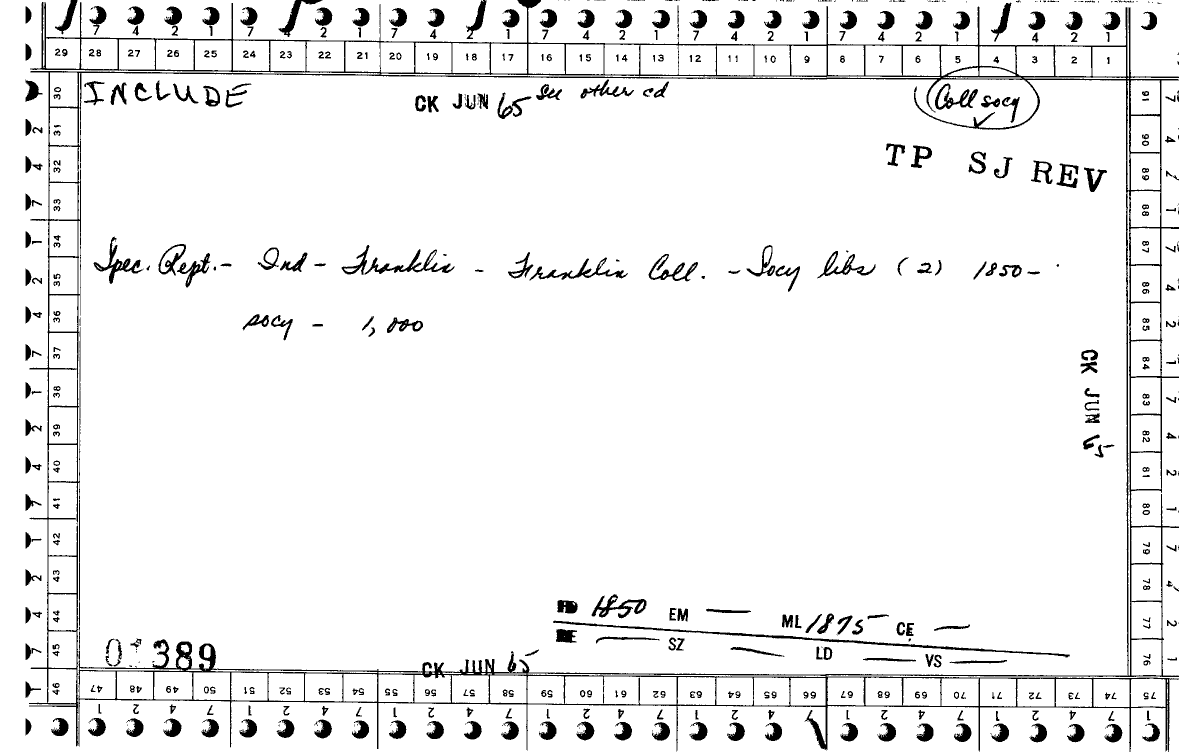 7 4 2 1 7 4 2 1 7 4 2 1 7 4 2 1 7 4 2 1 7 4 2 1 7 4 2 1
29 28 27 26 25 24 23 22 21 20 19 18 17 16 15 14 13 12 11 10 9 8 7 6 5 4 3 2 1
INCLUDE CK JUN 65 See other cd Coll socy
TP SJ REV
Spec. Rept. - Ind - Franklin - Franklin Coll. - Socy libs (2) 1850 -
socy - 1,000
CK JUN 65
FD 1850 EM — ML 1875 CE —
DE — SZ — LD — VS —
01389 CK JUN 65
30 31 32 33 34 35 36 37 38 39 40 41 42 43 44 45 46
47 48 49 50 51 52 53 54 55 56 57 58 59 60 61 62 63 64 65 66 67 68 69 70 71 72 73 74 75
91 90 89 88 87 86 85 84 83 82 81 80 79 78 77 76